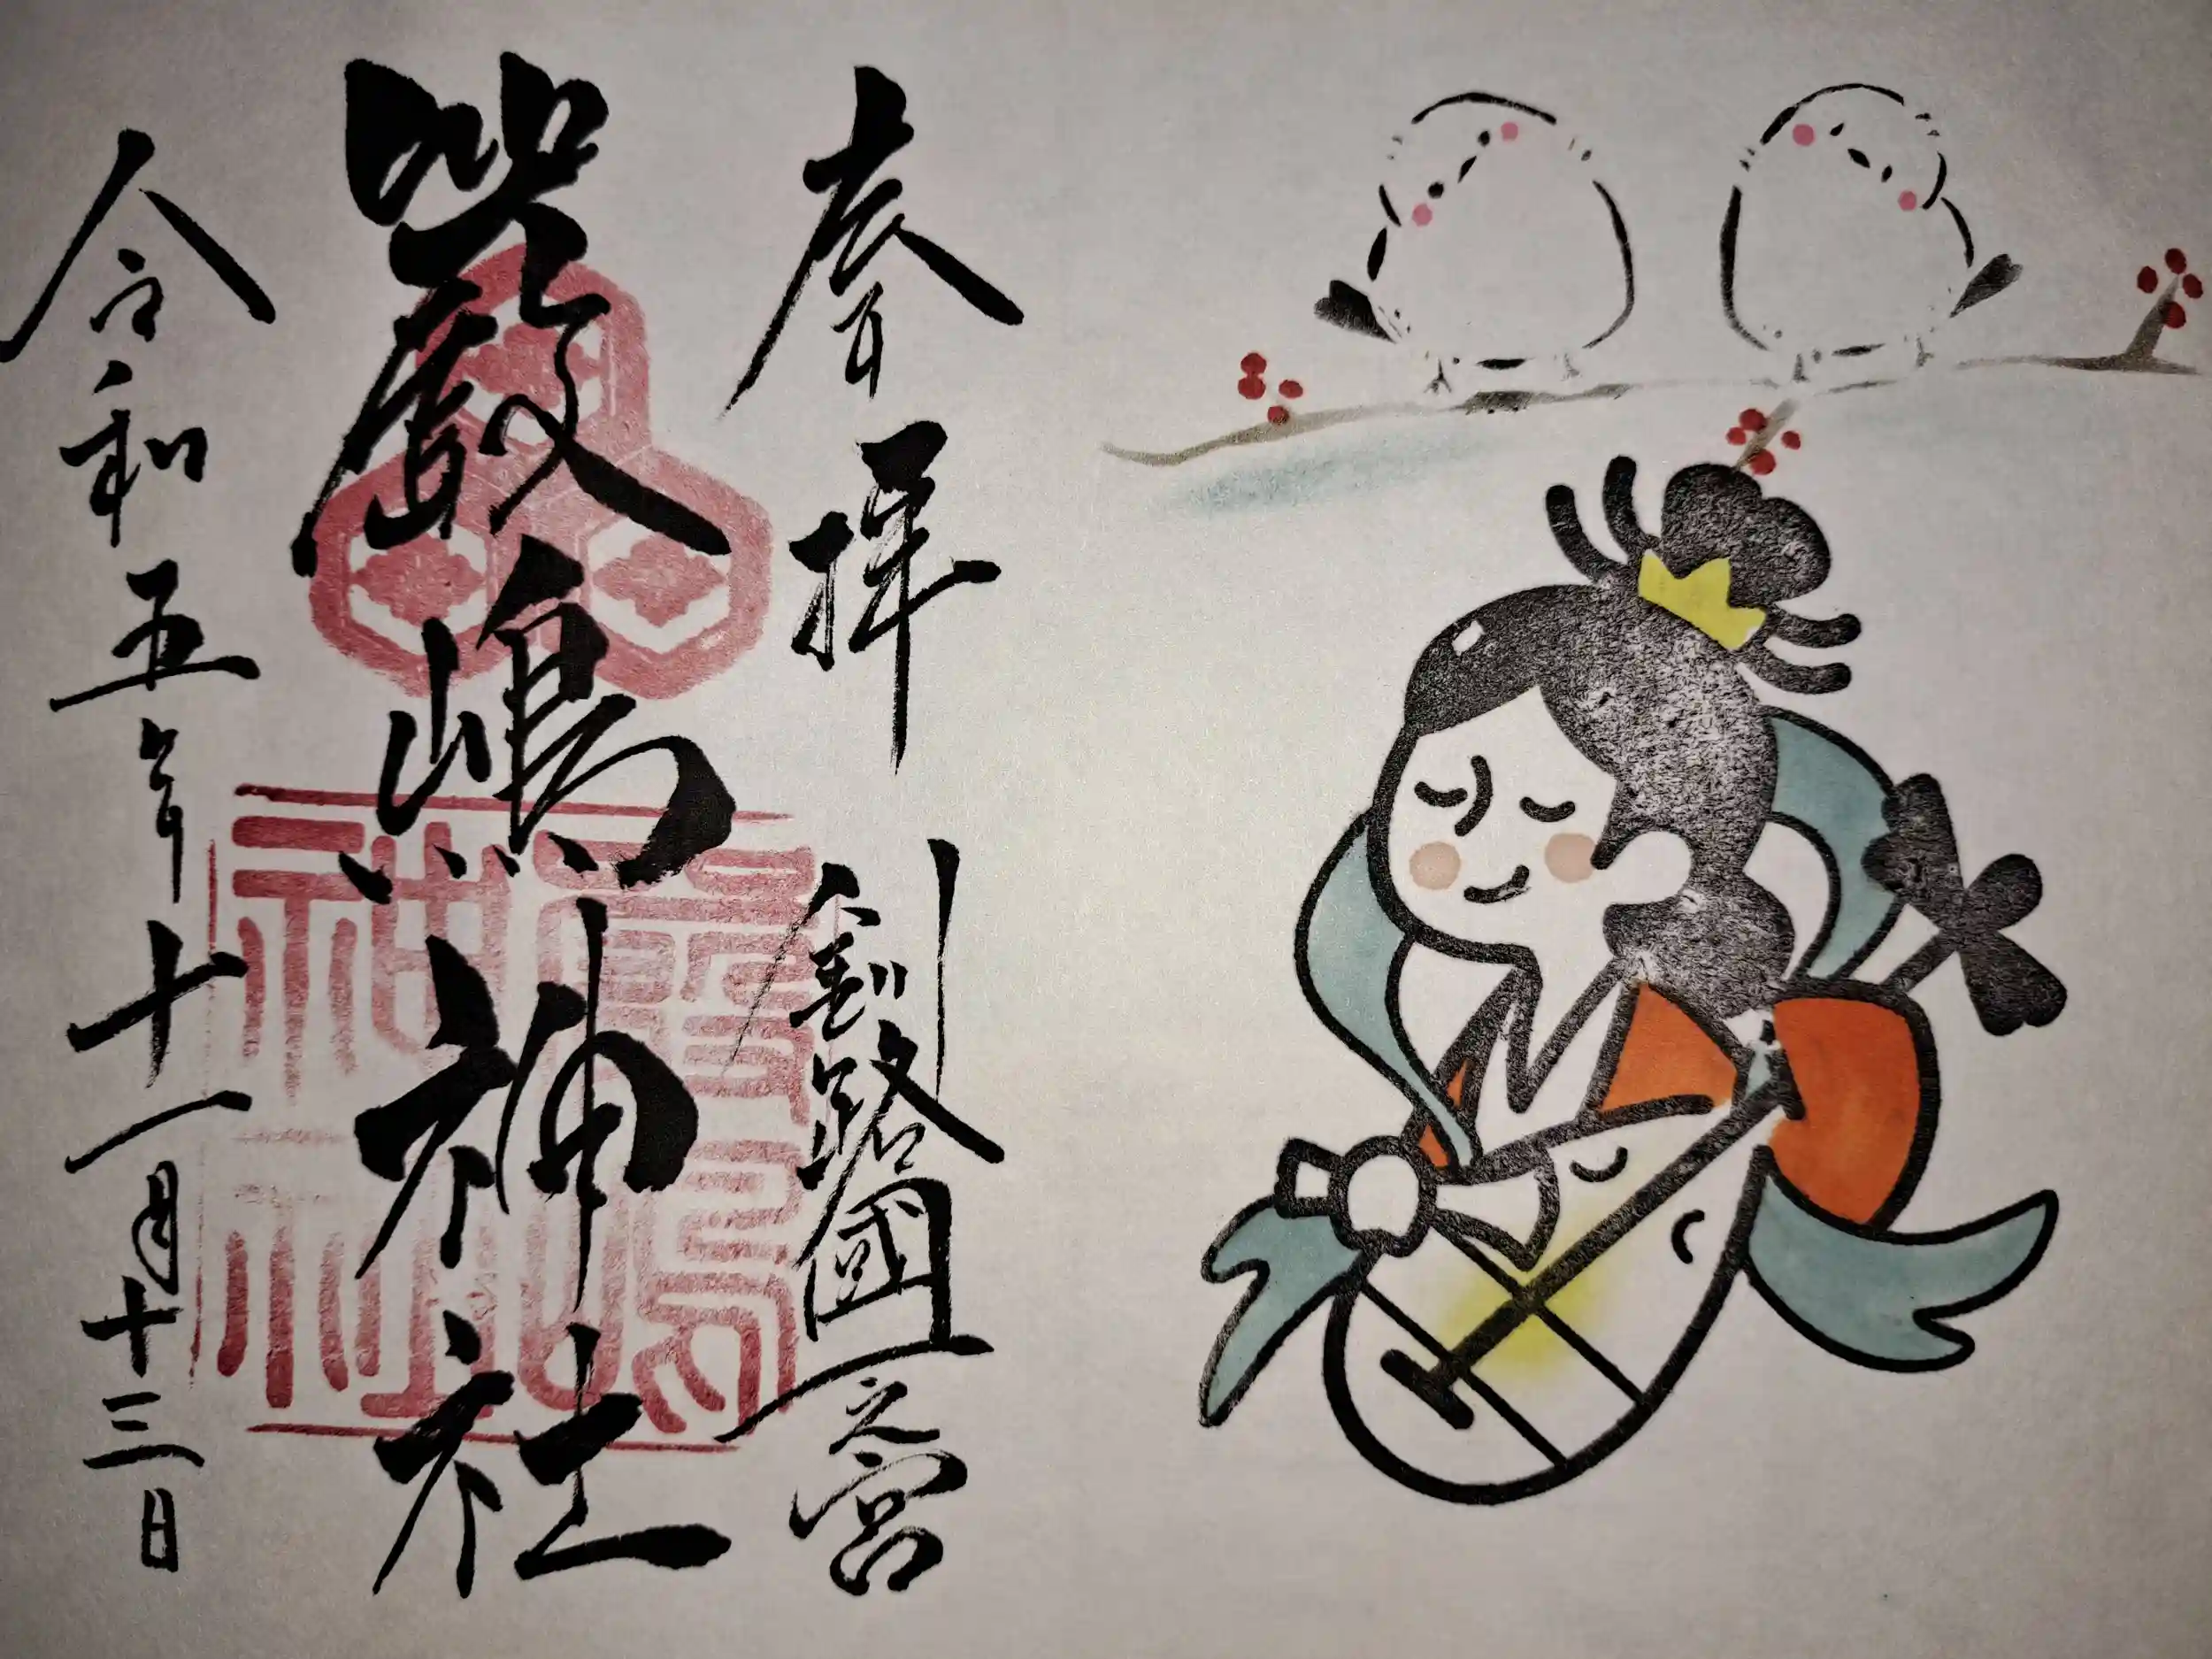 奉拝
釧路國一之宮
嚴嶋神社
令和五年十一月十三日
嚴嶋
神社